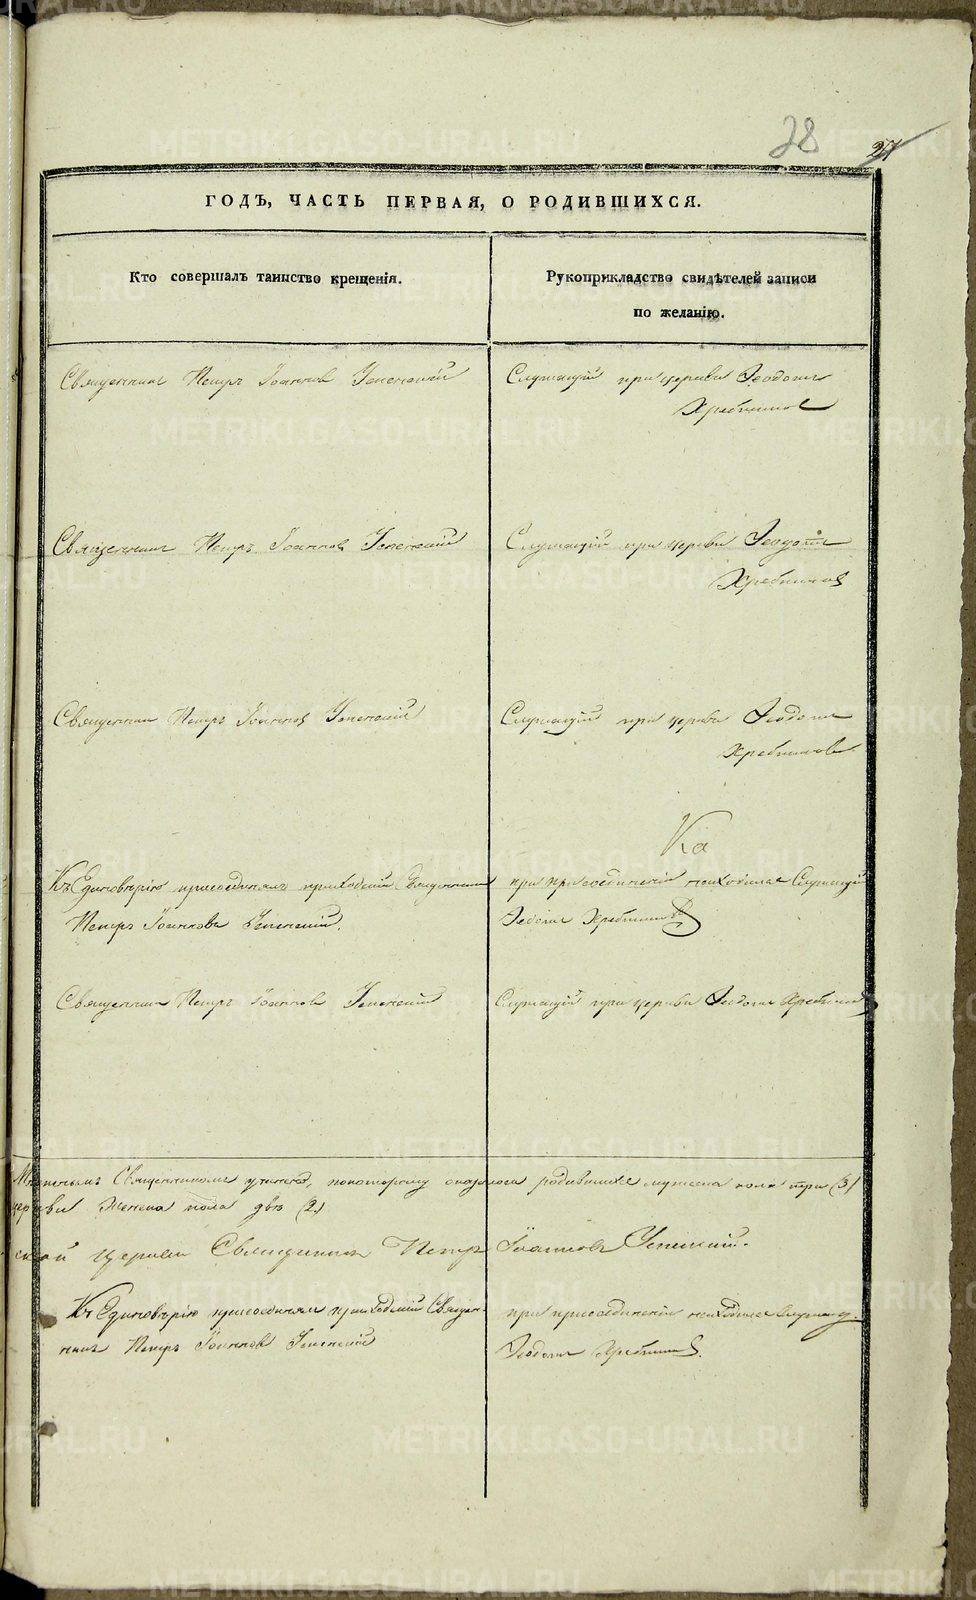 28
27
ГОДЪ, ЧАСТЬ ПЕРВАЯ, О РОДИВШИХСЯ.
Кто совершалъ таинство крещенія.
Рукоприкладство свидѣтелей записи
по желанію.
Священникъ Петръ Іоанновъ Успенскій
Служащій при церкви Ѳеодотъ
Хребтиковъ
Священникъ Петръ Іоанновъ Успенскій
Служащій при церкви Ѳеодотъ
Хребтиковъ
Священникъ Петръ Іоанновъ Успенскій
Служащій при церкви Ѳеодотъ
Хребтиковъ
Къ Единовѣрію присоединялъ приходскій Священникъ
Петръ Іоанновъ Успенскій.
при присоединеніи находился Служащій
Ѳедотъ Хребтиковъ
Священникъ Петръ Іоанновъ Успенскій
Служащій при церкви Ѳедотъ Хребтиковъ
Мѣстнымъ Священникомъ учинено, покоторому оказалось родившихся мужеска пола три (3)
церкви Женска пола двѣ (2)
ской церкви Священникъ Петръ Іоанновъ Успенскій.
Къ Единовѣрію присоединялъ приходскій Священ-
никъ Петръ Іоанновъ Успенскій
при присоединеніи находился Служащ.
Ѳеодотъ Хребтиковъ.
METRIKI.GASO-URAL.RU